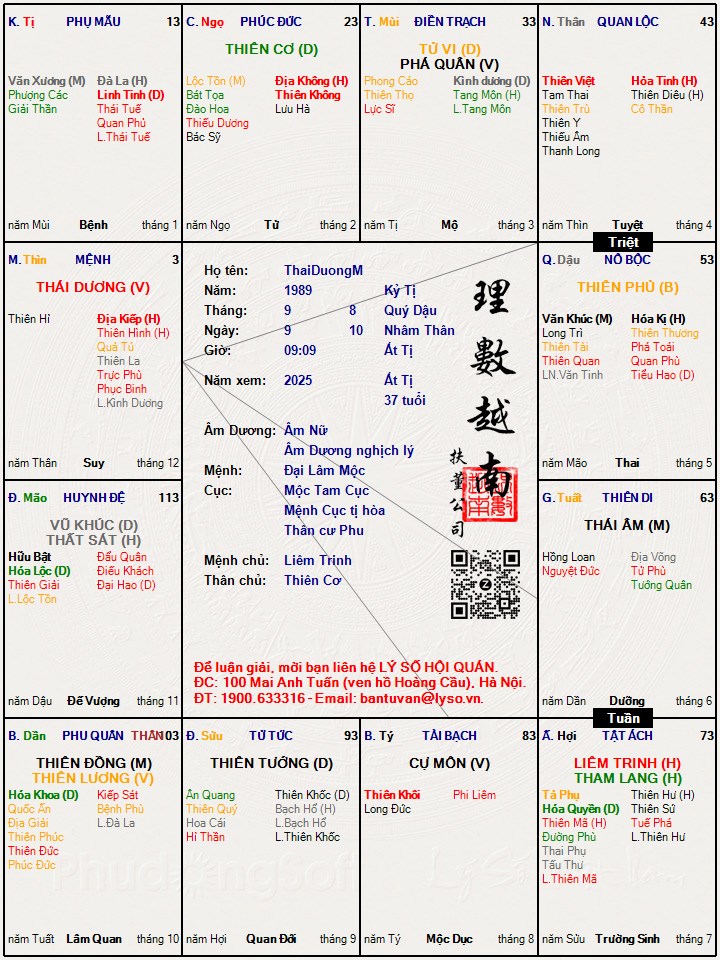 K. Tị PHỤ MẪU 13
Văn Xương (M) Đà La (H)
Phượng Các Linh Tinh (D)
Giải Thần Thái Tuế
Quan Phủ
L.Thái Tuế
năm Mùi Bệnh tháng 1
C. Ngọ PHÚC ĐỨC 23
THIÊN CƠ (D)
Lộc Tồn (M) Địa Không (H)
Bát Tọa Thiên Không
Đào Hoa Lưu Hà
Thiếu Dương
Bác Sỹ
năm Ngọ Tử tháng 2
T. Mùi ĐIỀN TRẠCH 33
TỬ VI (D)
PHÁ QUÂN (V)
Phong Cáo Kình dương (D)
Thiên Thọ Tang Môn (H)
Lực Sĩ L.Tang Môn
năm Tị Mộ tháng 3
N. Thân QUAN LỘC 43
Thiên Việt Hỏa Tinh (H)
Tam Thai Thiên Diêu (H)
Thiên Trù Cô Thần
Thiên Y
Thiếu Âm
Thanh Long
năm Thìn Tuyệt tháng 4
Triệt
M. Thìn MỆNH 3
THÁI DƯƠNG (V)
Thiên Hỉ Địa Kiếp (H)
Thiên Hình (H)
Quả Tú
Thiên La
Trực Phù
Phục Binh
L.Kình Dương
năm Thân Suy tháng 12
Họ tên: ThaiDuongM
Năm: 1989 Kỷ Tị
Tháng: 9 8 Quý Dậu
Ngày: 9 10 Nhâm Thân
Giờ: 09:09 Ất Tị
Năm xem: 2025 Ất Tị
37 tuổi
Âm Dương: Âm Nữ
Âm Dương nghịch lý
Mệnh: Đại Lâm Mộc
Cục: Mộc Tam Cục
Mệnh Cục tị hòa
Thân cư Phu
Mệnh chủ: Liêm Trinh
Thân chủ: Thiên Cơ
理數越南
扶董公司
Để luận giải, mời bạn liên hệ LÝ SỐ HỘI QUÁN.
ĐC: 100 Mai Anh Tuấn (ven hồ Hoàng Cầu), Hà Nội.
ĐT: 1900.633316 - Email: bantuvan@lyso.vn.
Q. Dậu NÔ BỘC 53
THIÊN PHỦ (B)
Văn Khúc (M) Hóa Kị (H)
Long Trì Thiên Thương
Thiên Tài Phá Toái
Thiên Quan Quan Phù
LN.Văn Tinh Tiểu Hao (D)
năm Mão Thai tháng 5
Đ. Mão HUYNH ĐỆ 113
VŨ KHÚC (D)
THẤT SÁT (H)
Hữu Bật Đẩu Quân
Hóa Lộc (D) Điếu Khách
Thiên Giải Đại Hao (D)
L.Lộc Tồn
năm Dậu Đế Vượng tháng 11
G. Tuất THIÊN DI 63
THÁI ÂM (M)
Hồng Loan Địa Võng
Nguyệt Đức Tử Phù
Tướng Quân
năm Dần Dưỡng tháng 6
Tuần
B. Dần PHU QUÂN THÂN 103
THIÊN ĐỒNG (M)
THIÊN LƯƠNG (V)
Hóa Khoa (D) Kiếp Sát
Quốc Ấn Bệnh Phù
Địa Giải L.Đà La
Thiên Phúc
Thiên Đức
Phúc Đức
năm Tuất Lâm Quan tháng 10
Đ. Sửu TỬ TỨC 93
THIÊN TƯỚNG (D)
Ân Quang Thiên Khốc (D)
Thiên Quý Bạch Hổ (H)
Hoa Cái L.Bạch Hổ
Hỉ Thần L.Thiên Khốc
năm Hợi Quan Đới tháng 9
B. Tý TÀI BẠCH 83
CỰ MÔN (V)
Thiên Khôi Phi Liêm
Long Đức
năm Tý Mộc Dục tháng 8
Ấ. Hợi TẬT ÁCH 73
LIÊM TRINH (H)
THAM LANG (H)
Tả Phụ Thiên Hư (H)
Hóa Quyền (D) Thiên Sứ
Thiên Mã (H) Tuế Phá
Đường Phù L.Thiên Hư
Thai Phụ
Tấu Thư
L.Thiên Mã
năm Sửu Trường Sinh tháng 7